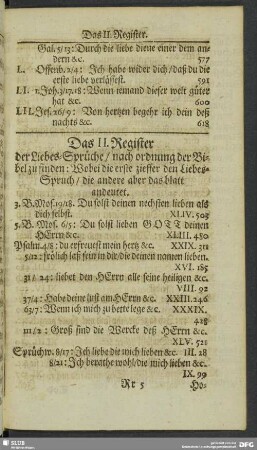 Das II. Register.
Gal. 5/13: Durch die liebe diene einer dem an-
dern &c. 577
L. Offenb. 2/4: Ich habe wider dich/daß du die
erste liebe verlässest. 591
LI. 1. Joh. 3/17.18: Wenn iemand dieser welt güter
hat &c. 600
LII. Jes. 26/9: Von hertzen begehr ich dein deß
nachts &c. 618
Das II. Register
der Liebes-Sprüche/nach ordnung der Bi-
bel zu finden: Wobei die erste zieffer den Liebes-
Spruch/die andere aber das blatt
andeutet.
3. B. Mos. 19/18. Du solst deinen nechsten lieben als
dich selbst. XLIV. 503
5. B. Mos. 6/5: Du solst lieben GOTT deinen
HErrn &c. XLIII. 450
Psalm. 4/8: du erfreuest mein hertz &c. XXIX. 311
5/12: frölich laß sein in dir/die deinen namen lieben.
XVI. 185
31/24: liebet den HErrn alle seine heiligen &c.
VIII. 92
37/4: Habe deine lust am HErrn &c. XXIII. 246
63/7: Wenn ich mich zu bette lege &c. XXXIX.
428
111/2: Groß sind die Wercke deß HErrn &c.
XLV. 521
Sprüchw. 8/17: Ich liebe die mich lieben &c. III. 28
8/21: Ich berathe wohl/die mich lieben &c.
IX. 99
Rr 5 Ho-
SLUB
DFG